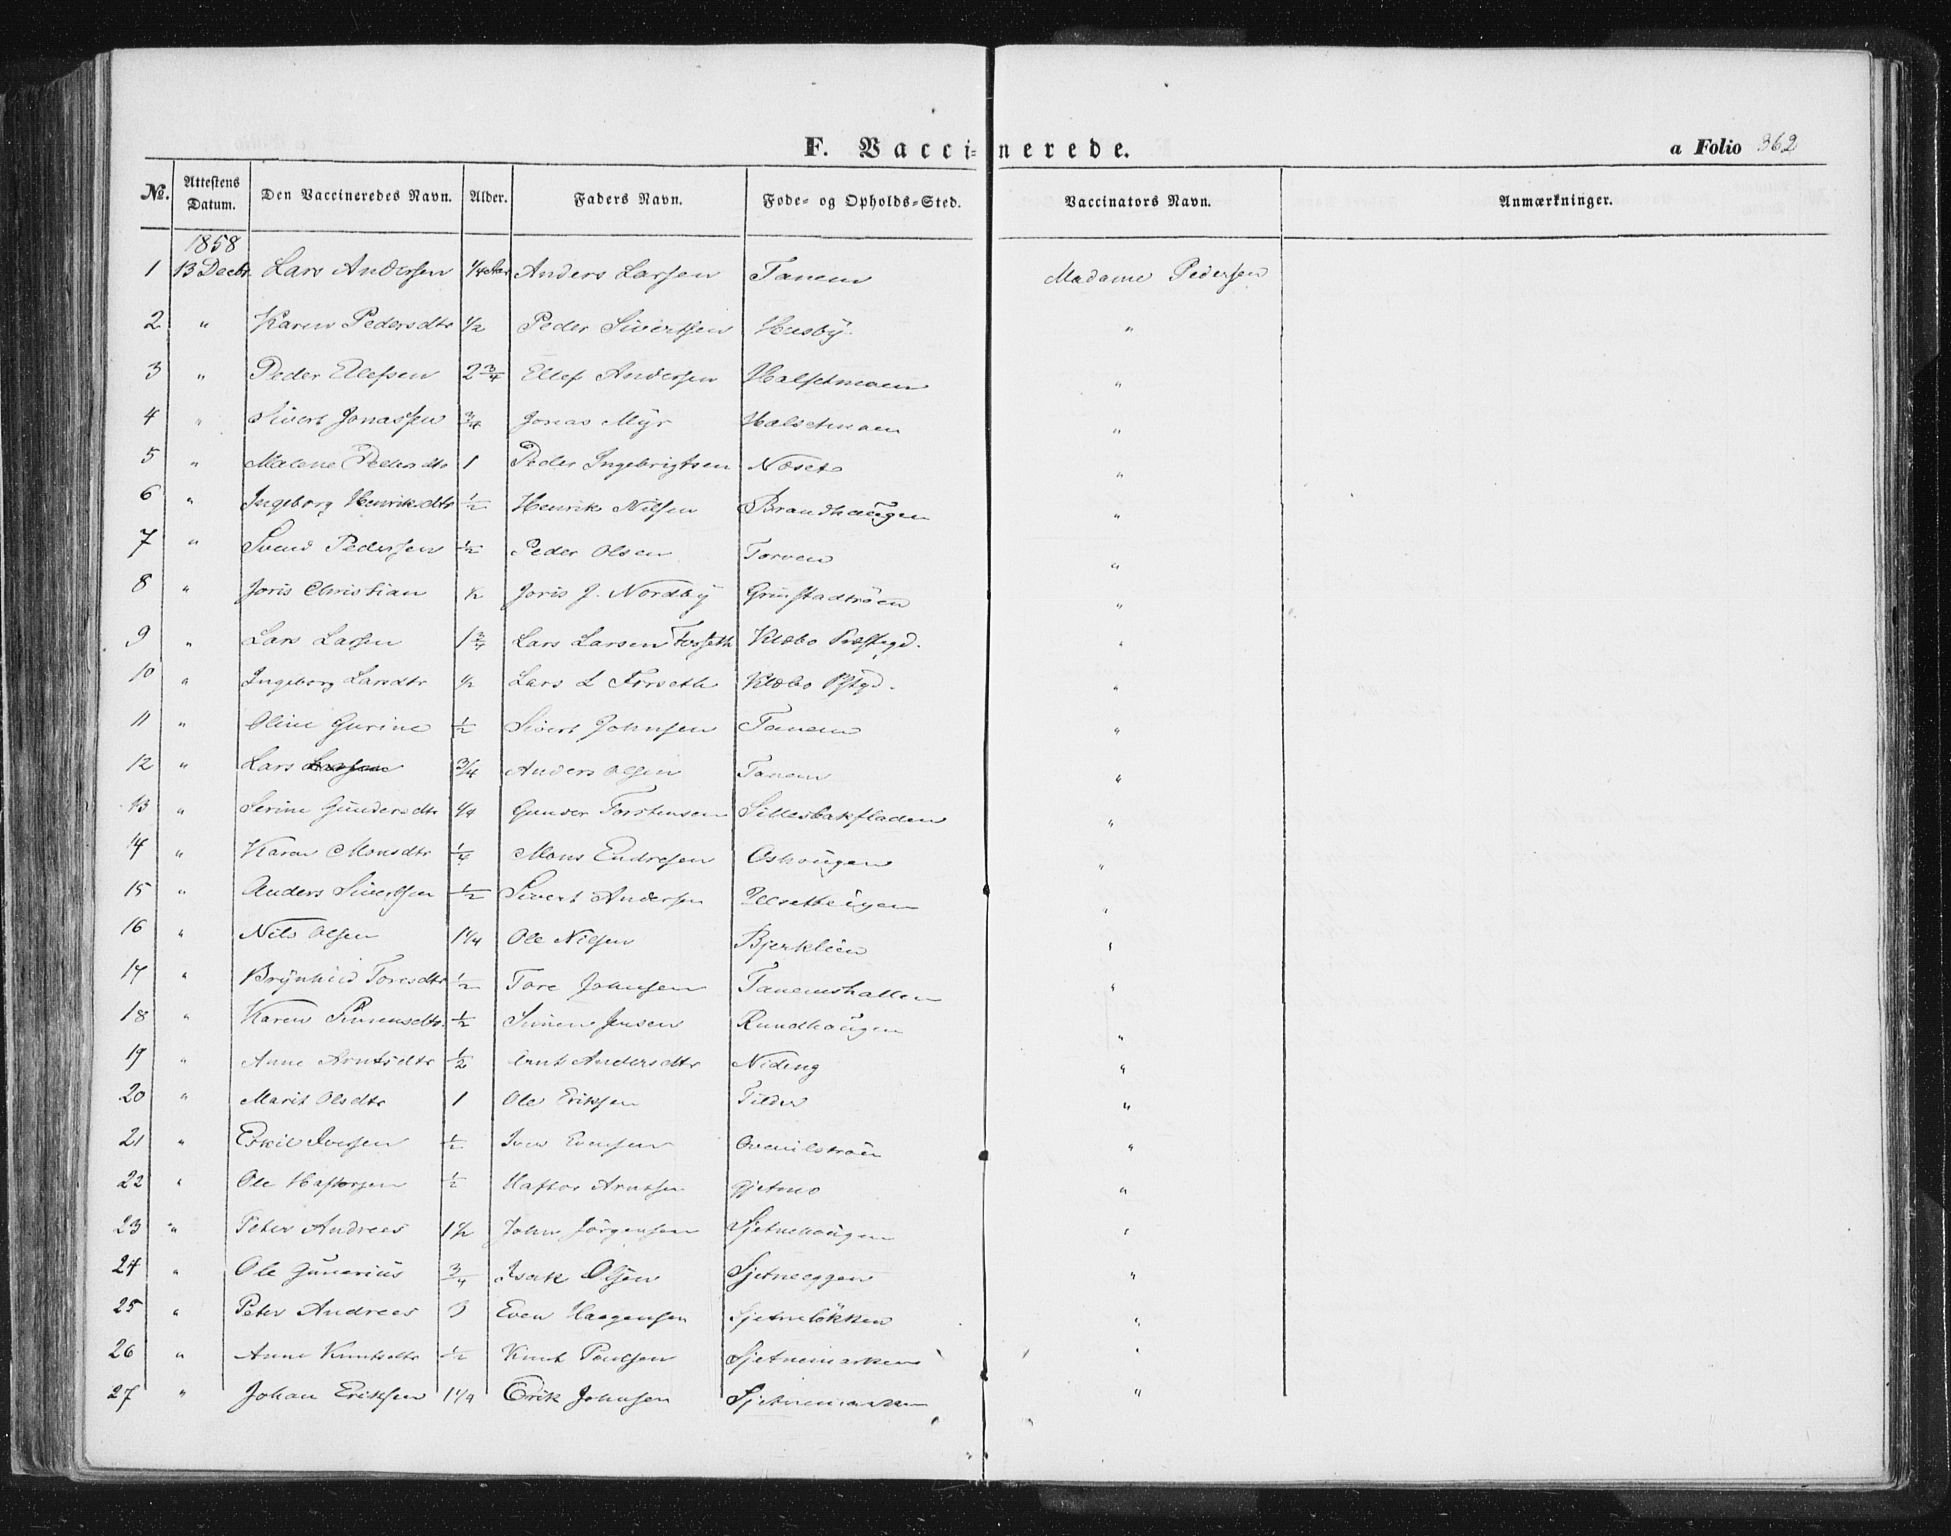 F. Vaccinerede.
a Folio 362
No. Attestens Datum. Den Vaccineredes Navn. Alder. Faders Navn. Føde- og Opholds-Sted. Vaccinators Navn. Anmærkninger.
1858
1 13 Decbr Lars Andersen 1/4 Aar Anders Larsen Tanem Madame Pedersen
2 " Karen Pedersdtr 1/2 Peder Sivertsen Husby "
3 " Peder Ellefsen 2 3/4 Ellef Andersen Halsetmoen "
4 " Sivert Jonassen 3/4 Jonas Myr Halsetmoen "
5 " Malene Pedersdtr 1 Peder Ingebrigtsen Næset "
6 " Ingeborg Henriksdtr 1/2 Henrik Nilsen Brandhaugen "
7 " Svend Pedersen 1/2 Peder Olsen Torven "
8 " Joris Christian 1/2 Joris J. Nordby Grinstadtrøen "
9 " Lars Larsen 1 3/4 Lars Larsen Forseth Klæbo Præstegd. "
10 " Ingeborg Larsdtr 1/2 Lars L Forseth Klæbo Pstgd. "
11 " Oline Gurine 1/2 Sivert Johnsen Tanem "
12 " Lars Larsen 3/4 Anders Olsen Tanem "
13 " Serine Gundersdtr 1/4 Gunder Torstensen Sillesbakfladen "
14 " Karen Monsdtr 1/4 Mons Endresen Oshaugen "
15 " Anders Sivertsen 1/2 Sivert Andersen "
16 " Nils Olsen 1 1/4 Ole Nilsen Bjerklien "
17 " Brynhild Toresdtr 1/2 Tore Johnsen Tanemshallen "
18 " Karen Simensdtr. 1/2 Simen Jensen Rundhaugen "
19 " Anne Arntsdtr 1/2 Arnt Andersdtr Niding "
20 " Marit Olsdtr 1 Ole Eriksen Tilder "
21 " Eskil Iversen 1/2 Iver Evensen "
22 " Ole Haftorsen 1/2 Haftor Arntsen Sjetmo "
23 " Peter Andreas 1 1/2 John Jørgensen Sjetnehaugen "
24 " Ole Gunerius 3/4 Isak Olsen Sjetneeggen "
25 " Peter Andreas 3 Even Haagensen Sjetneløkken "
26 " Anne Knutsdtr 1/2 Knut Paulsen Sjetnemarken "
27 " Johan Eriksen 1 1/4 Erik Johnsen Sjetnemarken "